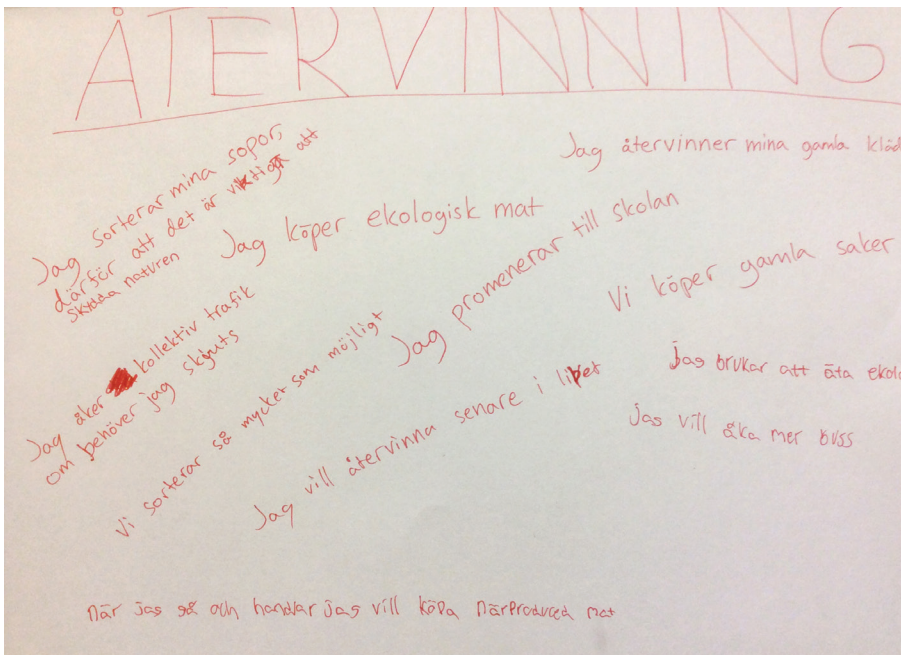 ÅTERVINNING
Jag sorterar mina sopor,
därför att det är viktigt att
skydda naturen
Jag återvinner mina gamla kläd
Jag köper ekologisk mat
Jag promenerar till skolan
Vi köper gamla saker
Jag åker kollektiv trafik
om behöver jag skjuts
Vi sorterar så mycket som möjligt
Jag vill återvinna senare i livet
jag brukar att äta ekolo
jag vill åka mer buss
när jag gå och handlar jag vill köpa närproduced mat